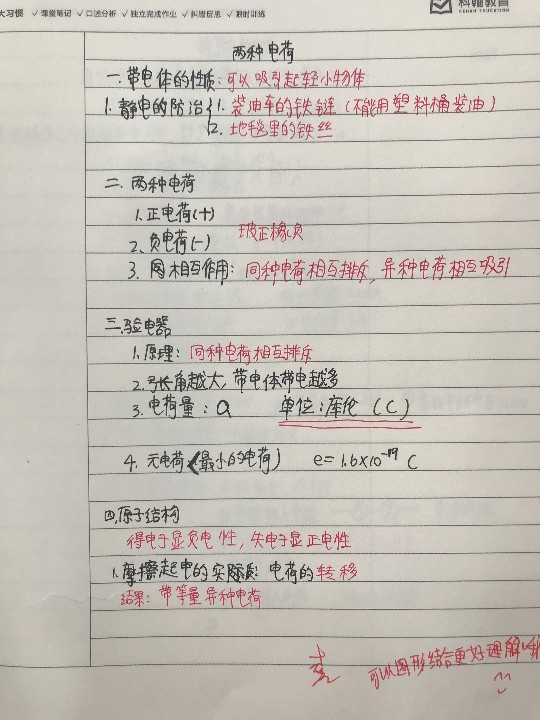 大习惯 ✓ 课堂笔记 ✓ 口述分析 ✓ 独立完成作业 ✓ 纠错反思 ✓ 限时训练
科翰教育
KEHAN EDUCATION
两种电荷
一.带电体的性质:可以吸引起轻小物体
1.静电的防治{1.装油车的铁链(不能用塑料桶装油)
2.地毯里的铁丝
二.两种电荷
1.正电荷(+)
2.负电荷(-) 玻正橡负
3.相互作用:同种电荷相互排斥,异种电荷相互吸引
三.验电器
1.原理:同种电荷相互排斥
2.张角越大,带电体带电越多
3.电荷量:Q 单位:库伦(C)
4.元电荷(最小的电荷) e=1.6×10⁻¹⁹ C
四.原子结构
得电子显负电性,失电子显正电性
1.摩擦起电的实际质:电荷的转移
结果:带等量异种电荷
可以图形结合更好理解